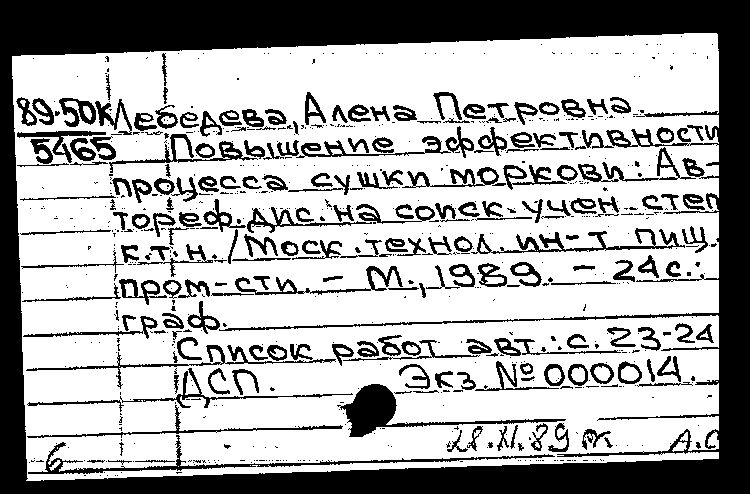 89-50К Лебедева, Алена Петровна.
5465 Повышение эффективности
процесса сушки моркови: Ав-
тореф. дис. на соиск. учен. степ
к.т.н. / Моск. технол. ин-т пищ.
пром-сти. - М., 1989. - 24 с.:
граф.
Список работ авт.: с. 23-24
ДСП. Экз. № 000014.
28.XI.89 А.С
6